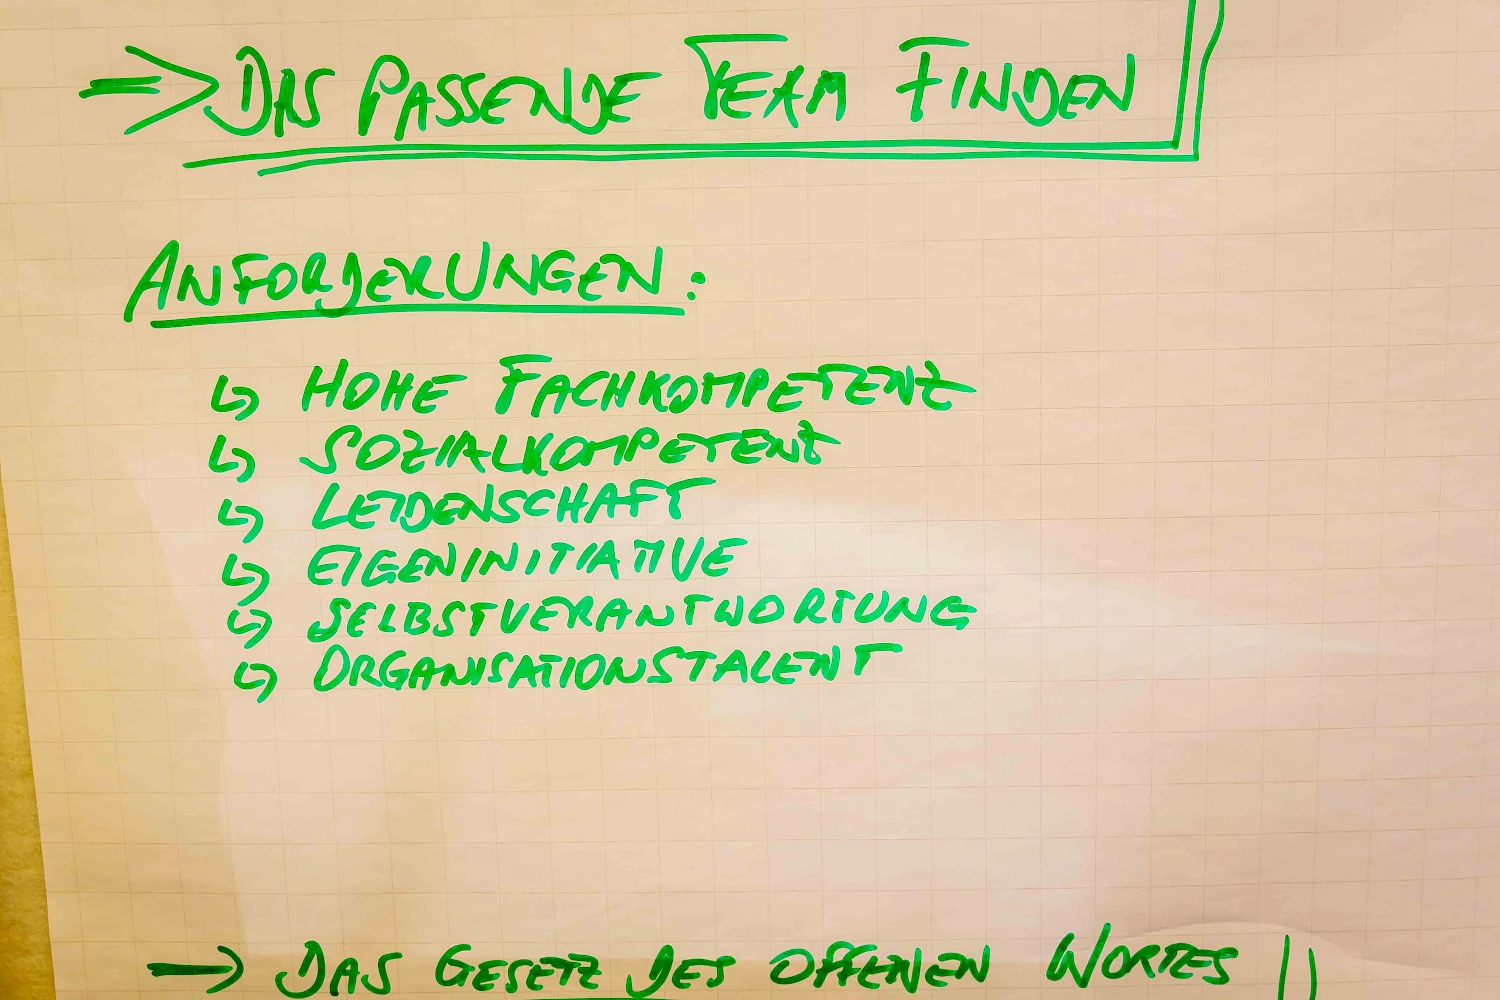 => DAS PASSENDE TEAM FINDEN
ANFORDERUNGEN:
↳ HOHE FACHKOMPETENZ
↳ SOZIALKOMPETENZ
↳ LEIDENSCHAFT
↳ EIGENINITIATIVE
↳ SELBSTVERANTWORTUNG
↳ ORGANISATIONSTALENT
→ DAS GESETZ DES OFFENEN WORTES !!